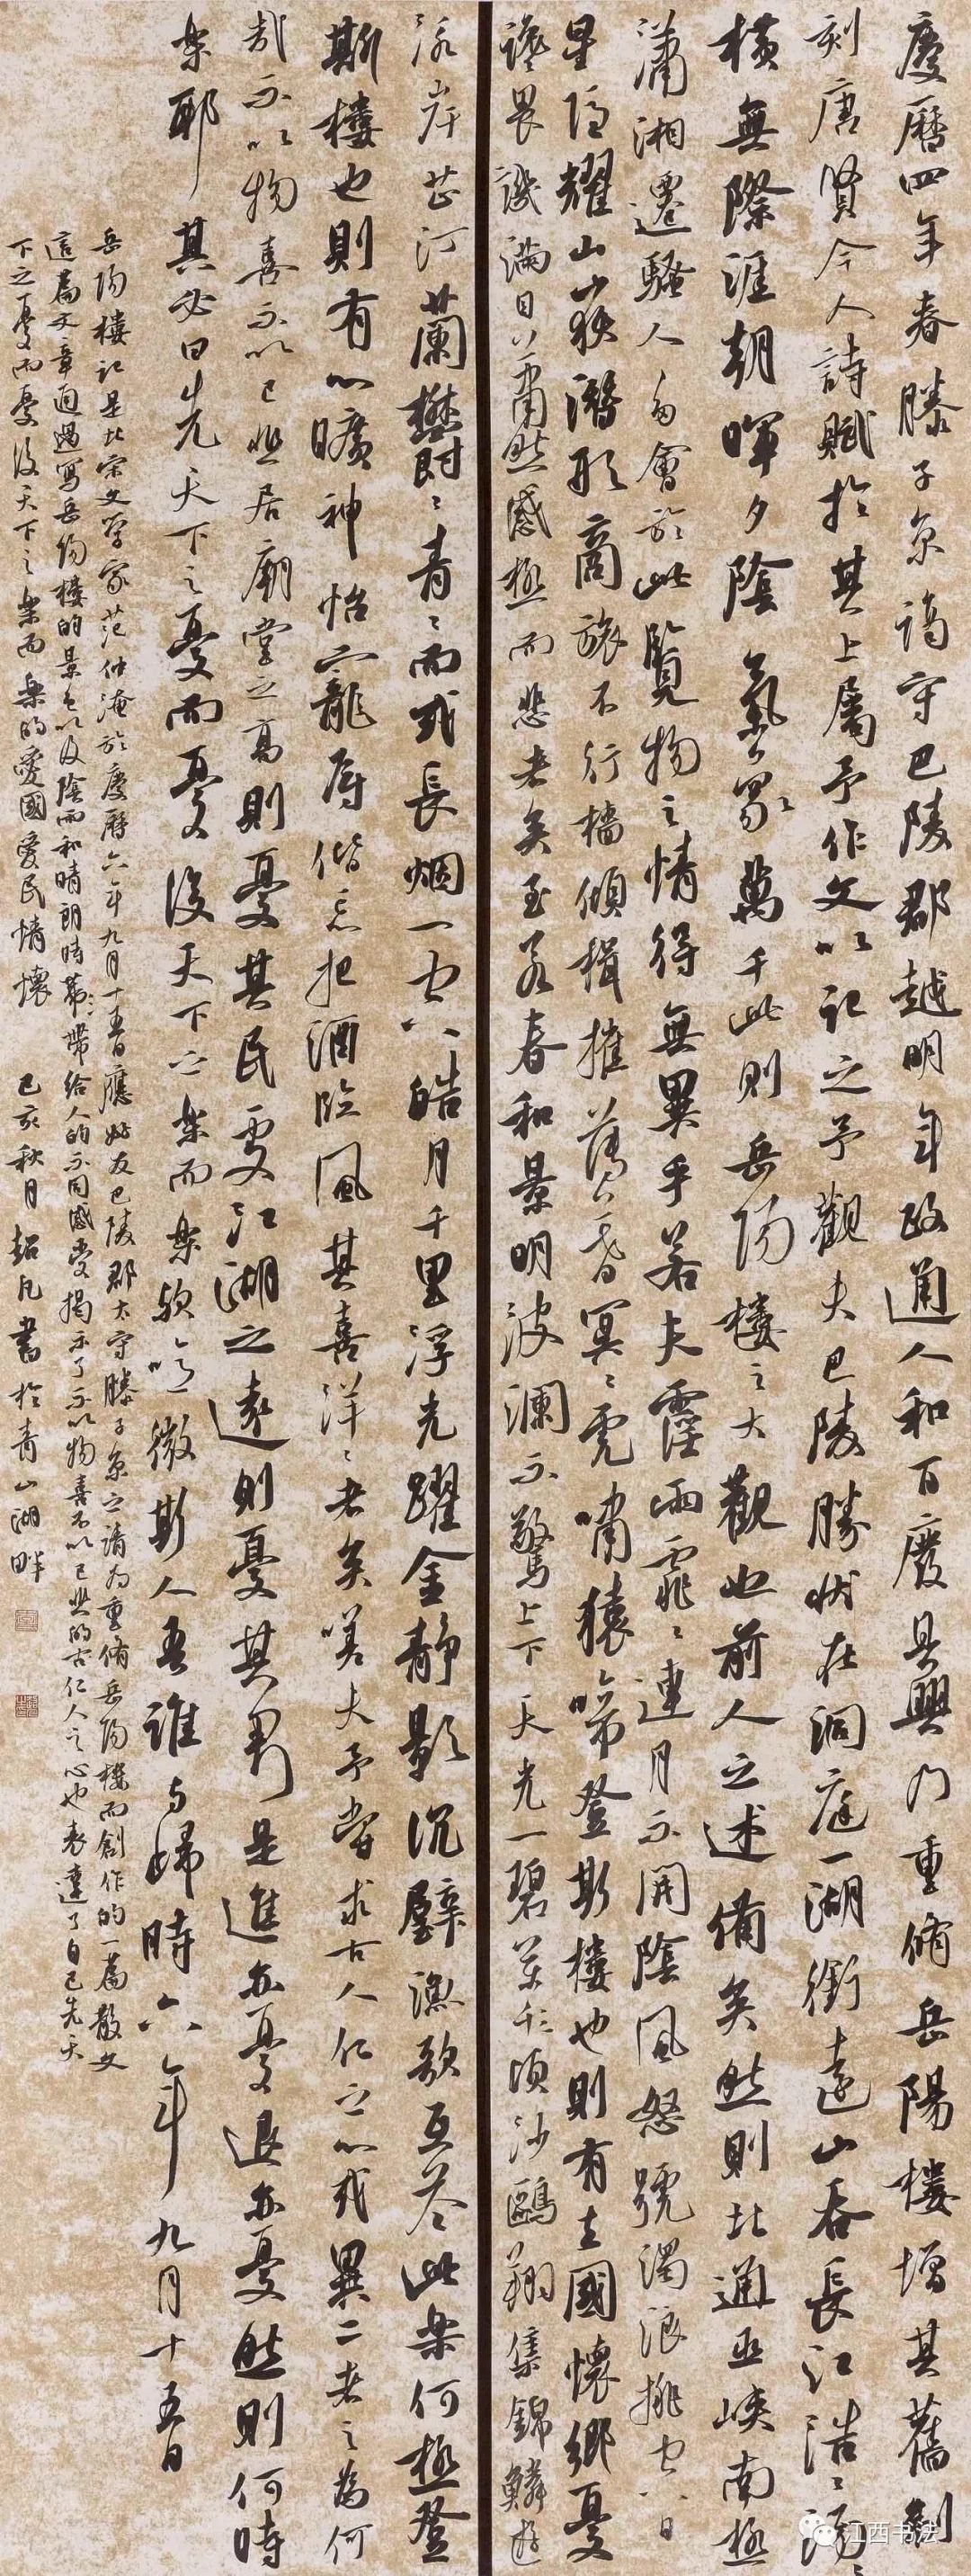 慶曆四年春滕子京謫守巴陵郡越明年政通人和百廢具興乃重脩岳陽樓增其舊制
刻唐賢今人詩賦於其上屬予作文以記之予觀夫巴陵勝狀在洞庭一湖銜遠山吞長江浩浩湯湯
橫無際涯朝暉夕陰氣象萬千此則岳陽樓之大觀也前人之述備矣然則北通巫峽南極
瀟湘遷騷人多會於此覽物之情得無異乎若夫霪雨霏霏連月不開陰風怒號濁浪排空日
星隱耀山嶽潛形商旅不行檣傾楫摧薄暮冥冥虎嘯猿啼登斯樓也則有去國懷鄉憂
讒畏譏滿目蕭然感極而悲者矣至若春和景明波瀾不驚上下天光一碧萬頃沙鷗翔集錦鱗游
泳岸芷汀蘭鬱鬱青青而或長烟一空皓月千里浮光躍金靜影沉璧漁歌互答此樂何極登
斯樓也則有心曠神怡寵辱偕忘把酒臨風其喜洋洋者矣嗟夫予嘗求古人仁之心或異二者之為何
哉不以物喜不以己悲居廟堂之高則憂其民處江湖之遠則憂其君是進亦憂退亦憂然則何時
樂耶其必曰先天下之憂而憂後天下之樂而樂歟噫微斯人吾誰與歸時六年九月十五日
岳陽樓記是北宋文學家范仲淹於慶曆六年九月十五日應好友巴陵郡太守滕子京之請為重脩岳陽樓而創作的一篇散文
這篇文章通過寫岳陽樓的景色以及陰雨和晴朗時帶給人的不同感受揭示了不以物喜不以己悲的古仁人之心也表達了自己先天
下之憂而憂後天下之樂而樂的愛國愛民情懷 己亥秋月超凡書於青山湖畔
江西书法